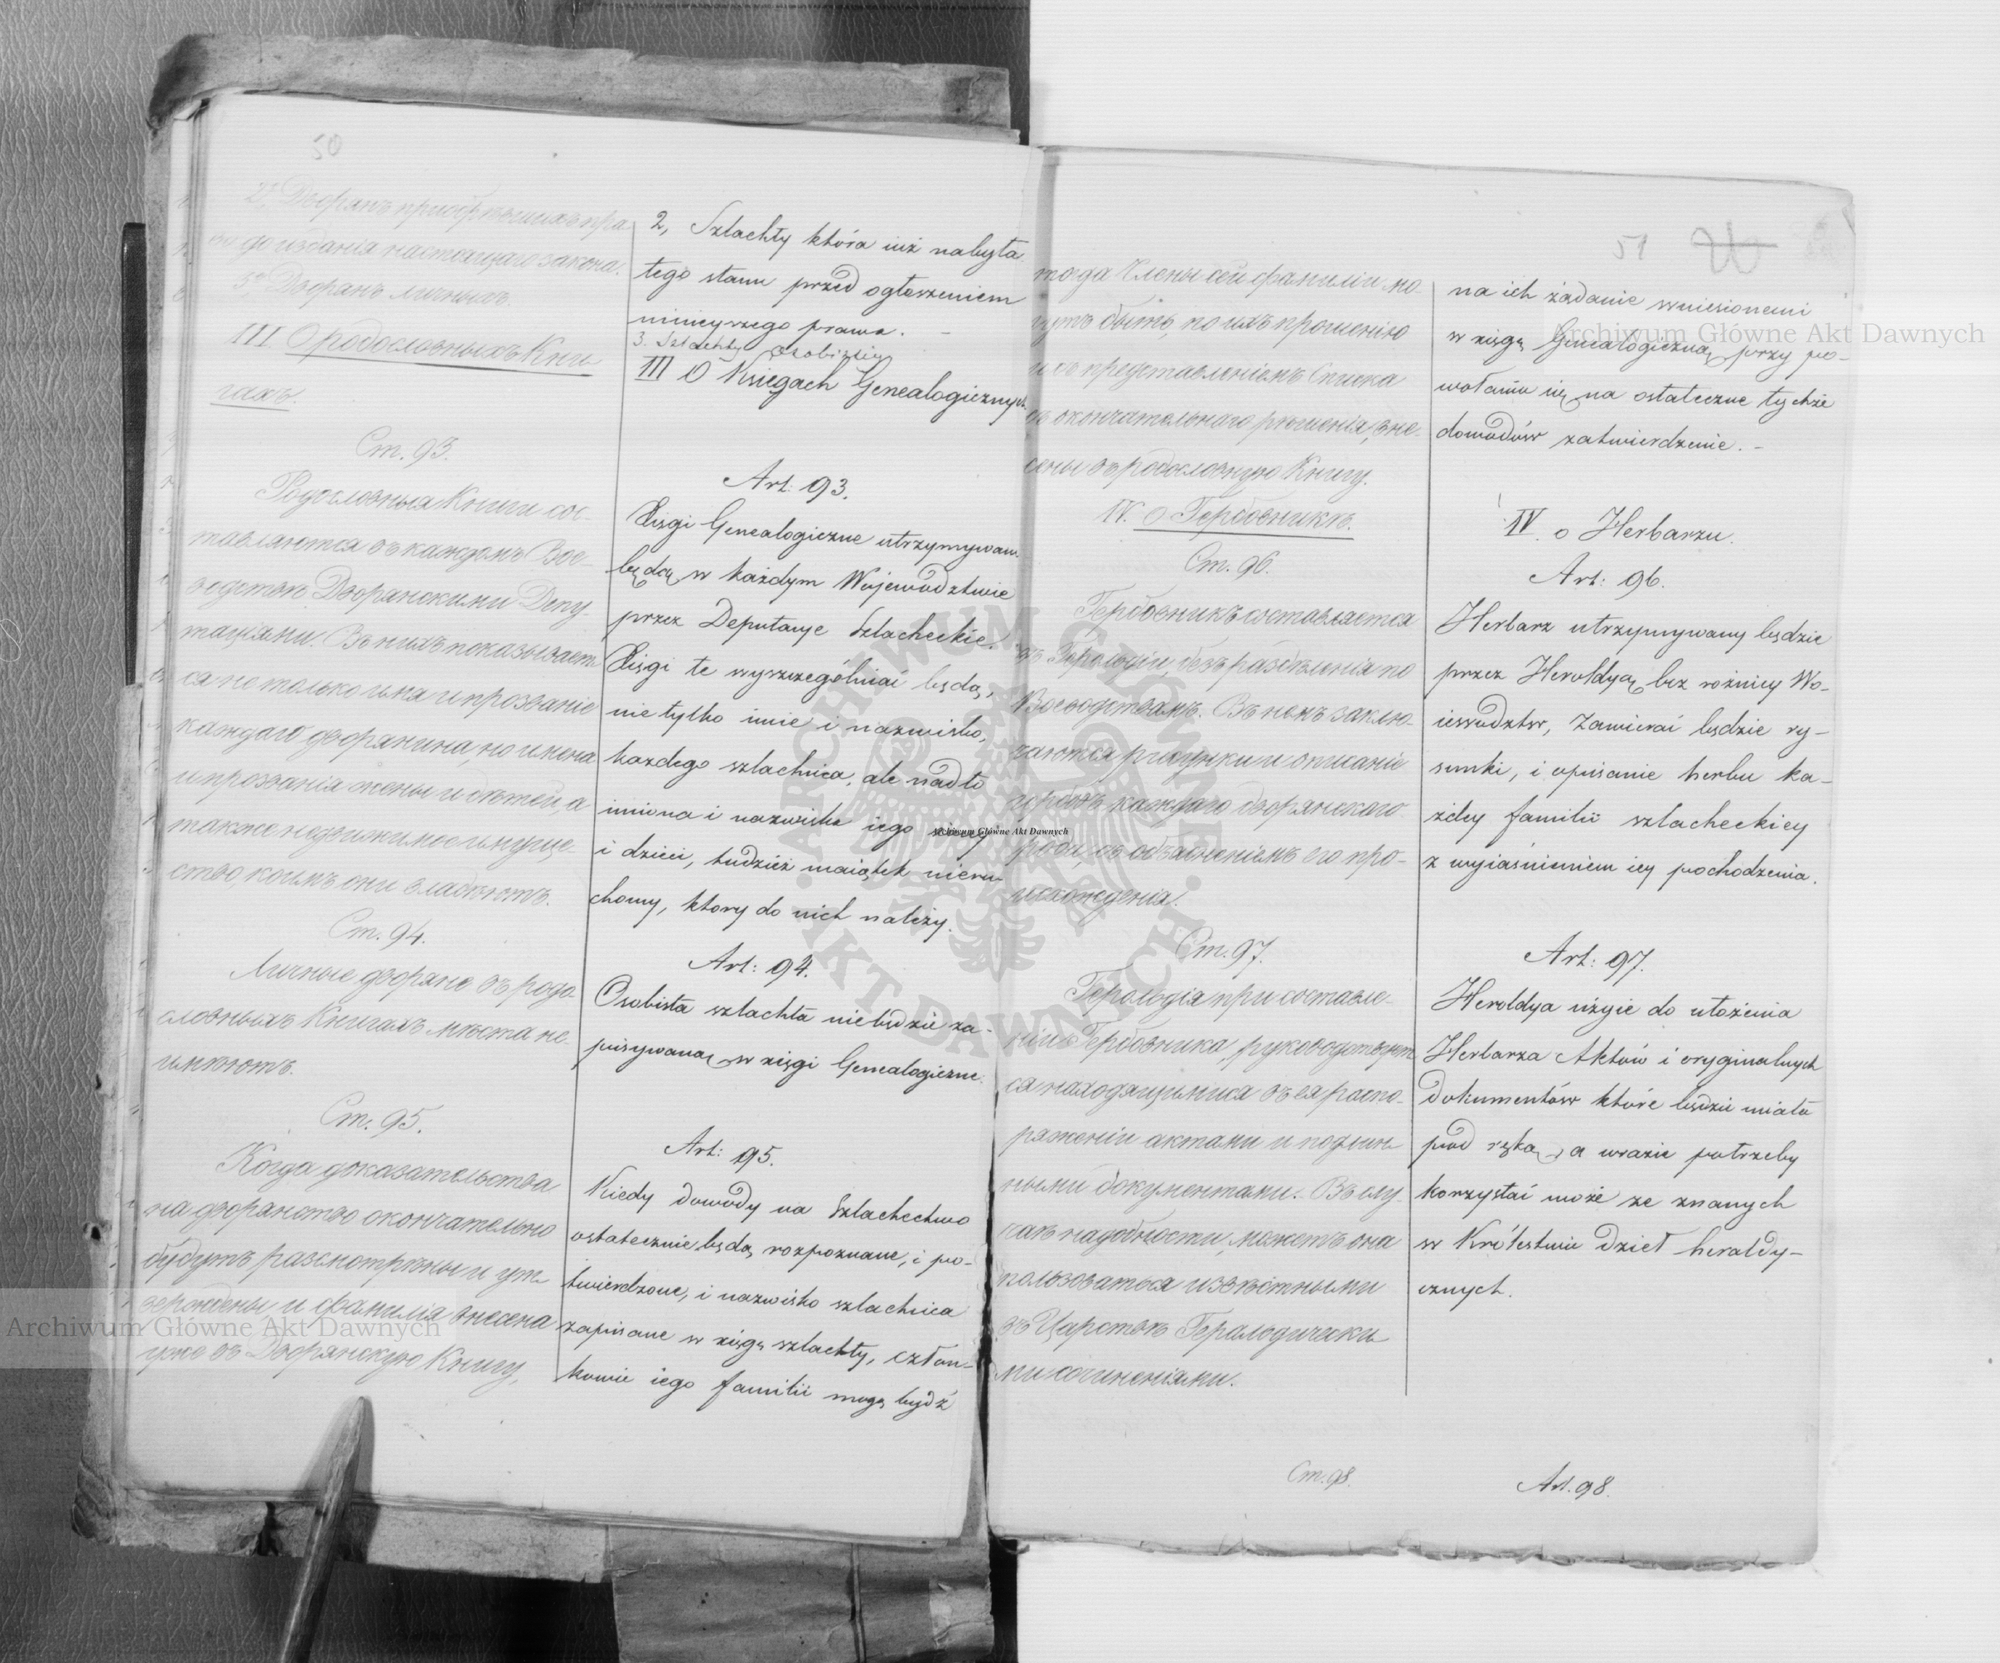 50
2, Дворянъ прiобрѣвшихъ пра
во до изданiя настоящаго закона.
3, Дворянъ личныхъ.
III О родословныхъ Кни
гахъ.
Ст. 93.
Родословныя Книги сос-
тавляются въ каждомъ Вое-
водствѣ Дворянскими Депу-
тацiями. Въ нихъ показывает
ся не только имя и прозванiе
каждаго дворянина, но имена
и прозванiя жены и дѣтей, а
также недвижимое имуще-
ство, коимъ они владѣютъ.
Ст. 94.
Личные дворяне въ родо
словныхъ Книгахъ мѣста не
имѣютъ.
Ст. 95.
Когда доказательства
на дворянство окончательно
будутъ разсмотрѣны и ут
верждены и фамилiя внесена
уже въ Дворянскую Книгу,
2, Szlachty która iuż nabyła
tego stanu przed ogłoszeniem
ninieyszego prawa. -
3. Szlachty osobistey
III O Księgach Genealogicznych
Art: 93.
Xięgi Genealogiczne utrzymywane
będą w każdym Wojewodztwie
przez Deputacye Szlacheckie.
Xięgi te wyszczególniać będą,
nie tylko imie i nazwisko,
każdego szlachcica, ale nadto
imiona i nazwiska iego żony
i dzieci, tudzież maiątek nieru-
chomy, ktory do nich należy.
Art: 94.
Osobista szlachta niebędzie za-
pisywaną w xięgi Genealogiczne.
Art: 95.
Kiedy dowody na Szlachectwo
ostatecznie będą rozpoznane, i po-
twierdzone, i nazwisko szlachcica
zapisane w xięgę szlachty, człon-
kowie iego familii mogą bydź
51
тогда Члены сей фамилiи мо-
гутъ быть, по ихъ прошенiю
и съ представленiемъ Списка
съ окончательнаго рѣшенiя, вне-
сены въ родословную Книгу.
IV. о Гербовникѣ.
Ст. 96.
Гербовникъ составляется
въ Герольдiи, безъ раздѣленiя по
Воеводствамъ. Въ немъ заклю
чаются рисунки и описанiе
гербовъ каждаго дворянскаго
рода, съ объясненiемъ его про-
исхожденiя.
Ст. 97.
Герольдiя при составле-
нiи Гербовника, руководствует
ся находящимися въ ея распо-
ряженiи актами и подлин
ными документами. Въ слу
чаѣ надобности, можетъ она
пользоваться извѣстными
въ Царствѣ Геральдически
ми сочиненiями.
Ст. 98.
na ich żądanie wniesionemi
w xięgę Genealogiczną, przy po-
wołaniu się na ostateczne tychże
dowodów zatwierdzenie. -
IV. o Herbarzu.
Art: 96.
Herbarz utrzymywany będzie
przez Heroldyą bez rożnicy Wo-
iewodztw, Zawierać będzie ry-
sunki, i opisanie herbu ka-
żdey familii szlacheckiey
z wyiaśnieniem iey pochodzenia.
Art: 97.
Heroldya użyie do ułożenia
Herbarza Aktów i oryginalnych
dokumentów które będzie miała
pod ręką, a wrazie potrzeby
korzystać może ze znanych
w Królestwie dzieł heraldy-
cznych.
Art. 98.
Archiwum Główne Akt Dawnych
Archiwum Główne Akt Dawnych
Archiwum Główne Akt Dawnych
ARCHIWUM GŁÓWNE AKT DAWNYCH